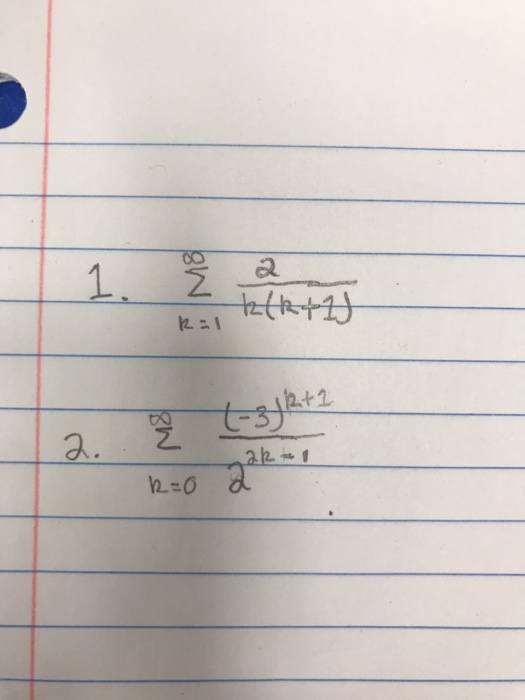 1. ∞ Σ k=1 2 / k(k+1)
2. ∞ Σ k=0 (-3)^(k+1) / 2^(2k-1)